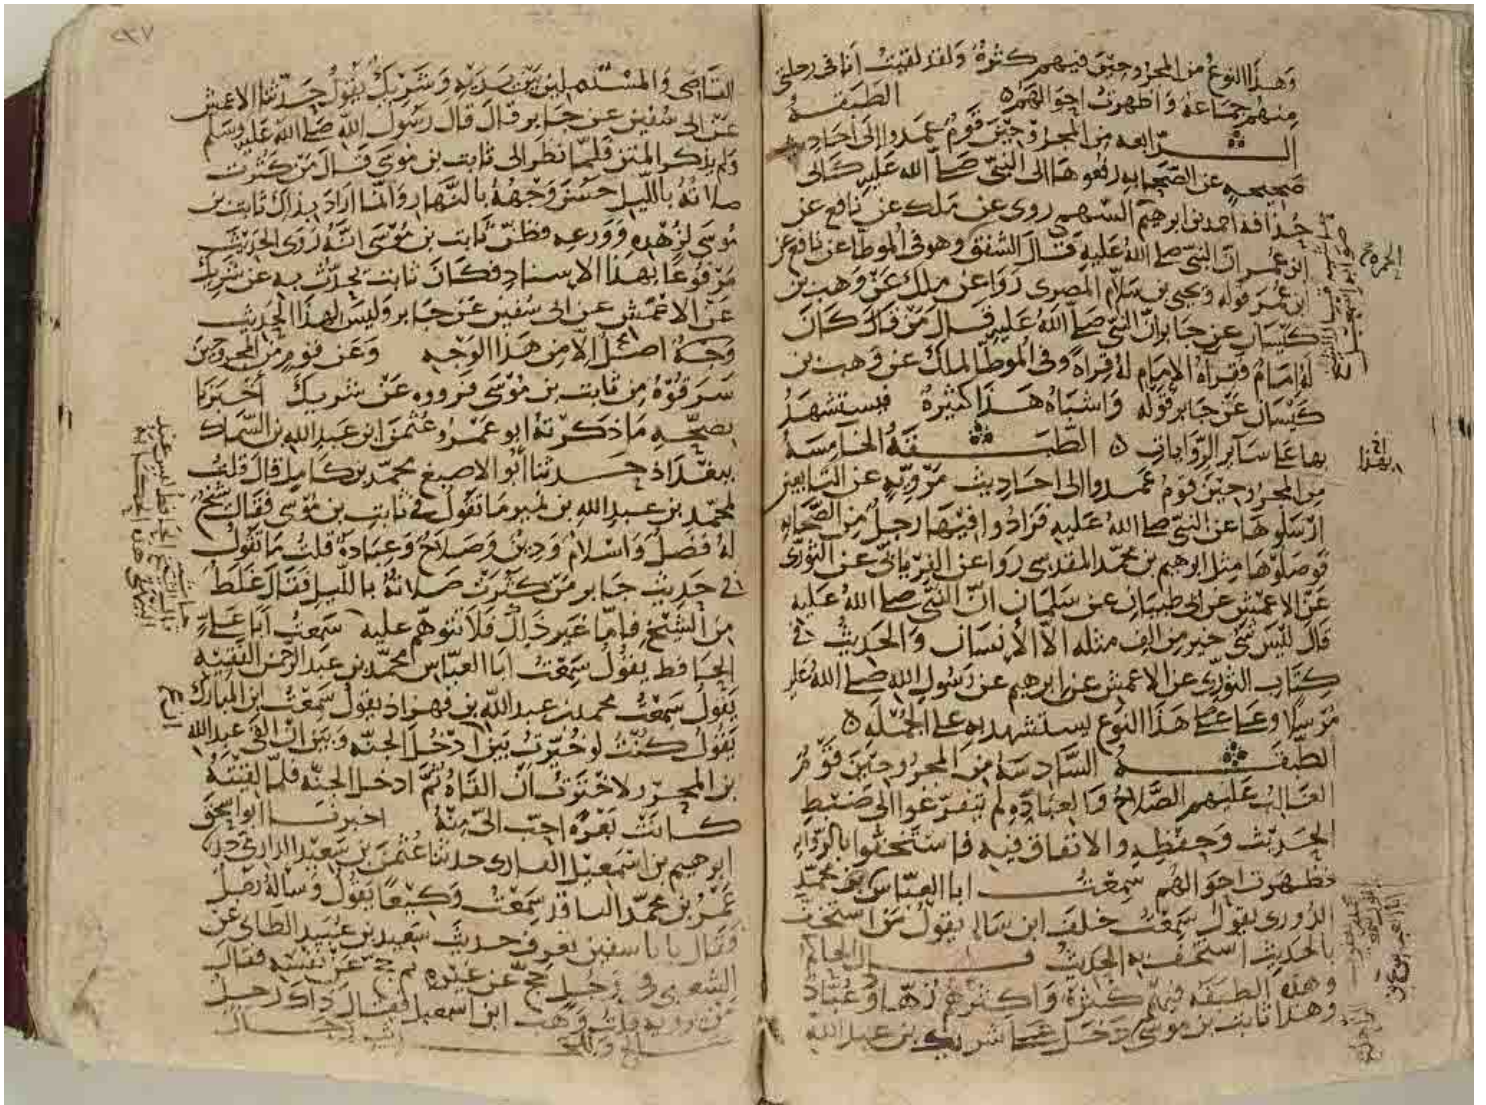 وهذا النوع من المجروحين فيهم كثرة ولقد لقيت انا في رحلتي
منهم جماعة واظهرت احوالهم ه الطبقة
الرابعه من المجروحين قوم عمدوا الى احاديث
صحيحه عن الصحابه رفعوها الى النبي صلى الله عليه كابي
حذافه احمد بن ابرهيم السهمي روى عن ملك عن نافع عن
ابن عمر ان النبي صلى الله عليه قال الشفق وهو في الموطا عن نافع عن
ابن عمر قوله ويحيى بن سلام المصرى روا عن ملك عن وهب بن
كيسان عن جابر ان النبي صلى الله عليه قال من كان
له امام فقراة الامام له قراة وفي الموطا لملك عن وهب بن
كيسان عن جابر قوله واشباه هذا كثيرة فيستشهد
بها على ساير الروايات ه الطبقة الخامسة
من المجروحين قوم عمدوا الى احاديث مروية عن التابعين
ارسلوها عن النبي صلى الله عليه فزادوا فيها رجل من الصحابه
فوصلوها مثل ابرهيم بن محمد المقدسي روا عن الفريابي عن الثورى
عن الاعمش عن ابي ظبيان عن سلمان ان النبي صلى الله عليه
قال ليس شي خير من الف مثله الا الانسان والحديث في
كتاب الثورى عن الاعمش عن ابرهيم عن رسول الله صلى الله عليه
مرسلا هذا النوع يستشهد به على الجملة ه
الطبقة السادسة من المجروحين قوم
الغالب عليهم الصلاح والعبادة ولم يتفرغوا الى ضبط
الحديث وحفظه والاتقان فيه فاستخفوا بالرواية
فظهرت احوالهم سمعت ابا العباس بن محمد
الدورى يقول سمعت خلف ابن سالم يقول من استخف
بالحديث استخف به الحديث قال الحاكم
وهذه الطبقة فيهم كثرة واكثرهم زهاد وعباد
وهذا ثابت بن موسى دخل على شريك بن عبد الله
الحمرة
بهذا
القاضي والمستملي بين يديه وشريك يقول حدثنا الاعمش
عن ابي سفين عن جابر قال قال رسول الله صلى الله عليه وسلم
ولم يذكر المتن فلما نظر الى ثابت بن موسى قال من كثرت
صلاته بالليل حسن وجهه بالنهار وانما اراد بذاك ثابت بن
موسى لزهده وورعه فظن ثابت بن موسى انه روى الحديث
مرفوعا بهذا الاسناد فكان ثابت يحدث به عن شريك
عن الاعمش عن ابي سفين عن جابر وليس لهذا الحديث
اصل الا من هذا الوجه وعن قوم من المجروحين
سرقوه من ثابت بن موسى فرووه عن شريك اخبرنا
بصحه ما ذكرته ابو عمرو عثمن ابن عبد الله بن السماك
ببغداذ حدثنا ابو الاصبغ محمد بن كامل قال قلت
لمحمد بن عبد الله بن نمير ما تقول في ثابت بن موسى فقال شيخ
له فضل واسلام ودين وصلاح وعبادة قلت ما تقول
في حديث جابر من كثرت صلاته بالليل فقال غلط
من الشيخ فاما غير ذلك فلا نتوهم عليه سمعت ابا علي
الحافظ يقول سمعت ابا العباس محمد بن عبد الرحمن الفقيه
يقول سمعت محمد بن عبد الله بن قهزاد يقول سمعت ابن المبارك
يقول كنت لو خيرت بين ادخل الجنة وبين ان القى عبد الله
بن المحرر لاخترت ان القاه ثم ادخل الجنة فلما لقيته
كانت بعرة احب الي منه اخبرنا ابو اسحق
ابرهيم بن اسمعيل القارى حدثنا عثمن بن سعيد الدارمي
عمرو بن محمد الناقد سمعت وكيعا يقول وساله رجل
فقال يا با سفين تعرف حديث سعيد بن عبيد الطاى عن
الشعبي في رجل حج عن غيره ثم حج عن نفسه فقال
من يرويه قلت وهب ابن اسمعيل فقال ذاك رجل
صالح رجال